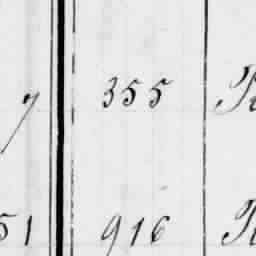 7 355
51 916